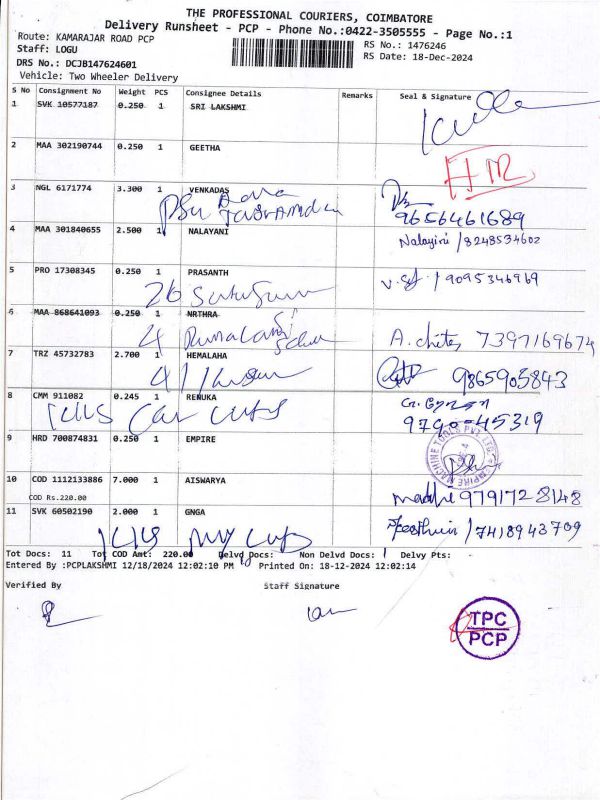 THE PROFESSIONAL COURIERS, COIMBATORE
Delivery Runsheet - PCP - Phone No.:0422-3505555 - Page No.:1
Route: KAMARAJAR ROAD PCP
RS No.: 1476246
Staff: LOGU
RS Date: 18-Dec-2024
DRS No.: DCJB147624601
Vehicle: Two Wheeler Delivery
S No Consignment No Weight PCS Consignee Details Remarks Seal & Signature
1 SVK 10577187 0.250 1 SRI LAKSHMI
2 MAA 302190744 0.250 1 GEETHA
3 NGL 6171774 3.300 1 VENKADAS
9656461689
4 MAA 301840655 2.500 1 NALAYANI
Nalayini / 8248534602
5 PRO 17308345 0.250 1 PRASANTH
9095346969
26
6 MAA 868641093 0.250 1 NRTHRA
4
7397169674
7 TRZ 45732783 2.700 1 HEMALAHA
9865905843
41
8 CMM 911082 0.245 1 RENUKA
9790045319
9 HRD 700874831 0.250 1 EMPIRE
EMPIRE MACHINE TOOLS PVT LTD
10 COD 1112133886 7.000 1 AISWARYA
COD Rs.220.00
9791728148
11 SVK 60502190 2.000 1 GNGA
7418943709
Tot Docs: 11 Tot COD Amt: 220.00 Delvd Docs: Non Delvd Docs: Delvy Pts: -
Entered By :PCPLAKSHMI 12/18/2024 12:02:10 PM Printed On: 18-12-2024 12:02:14
Verified By Staff Signature
TPC
PCP